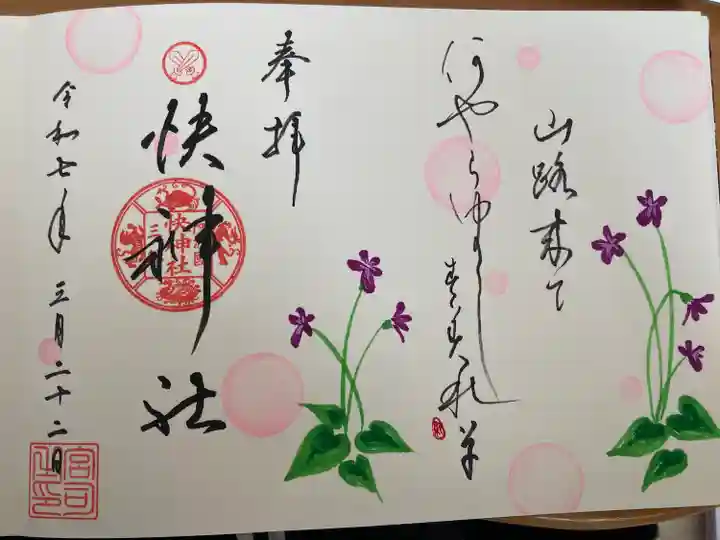 山路来て
何やらゆかしすみれ草
奉拝
快神社
快神社
令和七年 三月二十二日
宮司之印